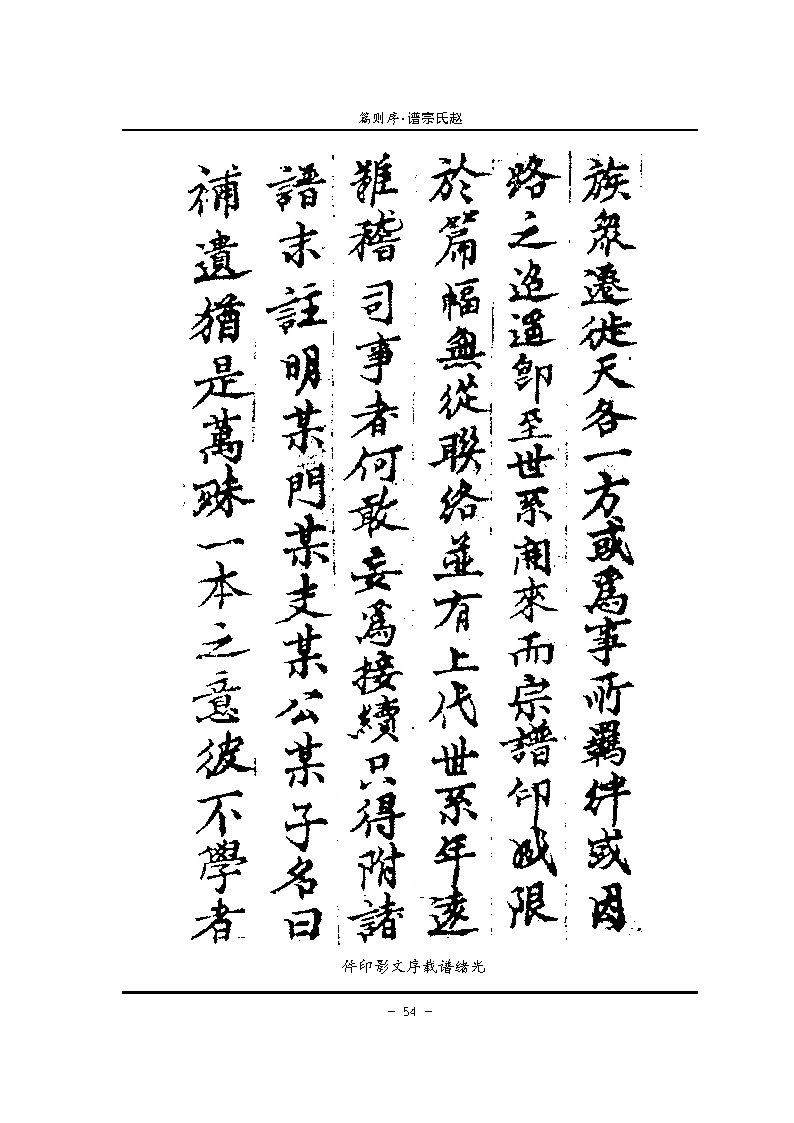 赵氏宗谱·序则篇
族衆遷徙天各一方或爲事所羈絆或因
路之迢遥卽至世系開來而宗譜印成限
於篇幅無從聯絡並有上代世系年遠
難稽司事者何敢妄爲接續只得附諸
譜末註明某門某支某公某子名曰
補遺猶是萬殊一本之意彼不學者
光绪谱载序文影印件
- 54 -